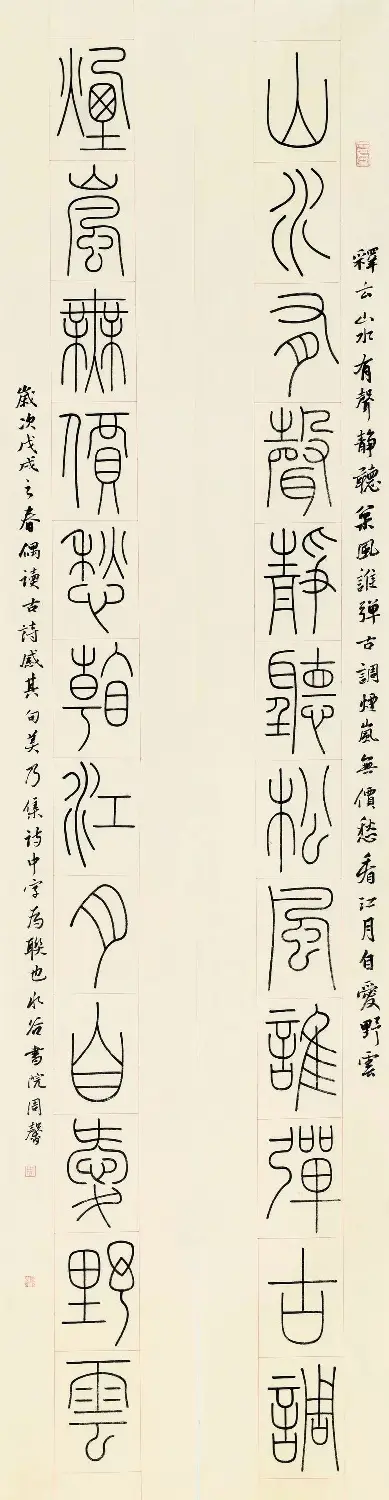 釋云山水有聲静聽枩風誰彈古調煙嵐無價愁看江月自愛野雲
山水有聲靜聽松風誰彈古調
煙嵐無價愁看江月自愛野雲
歲次戊戌之春偶讀古詩感其句美乃集诗中字為聯也水谷書院周馨